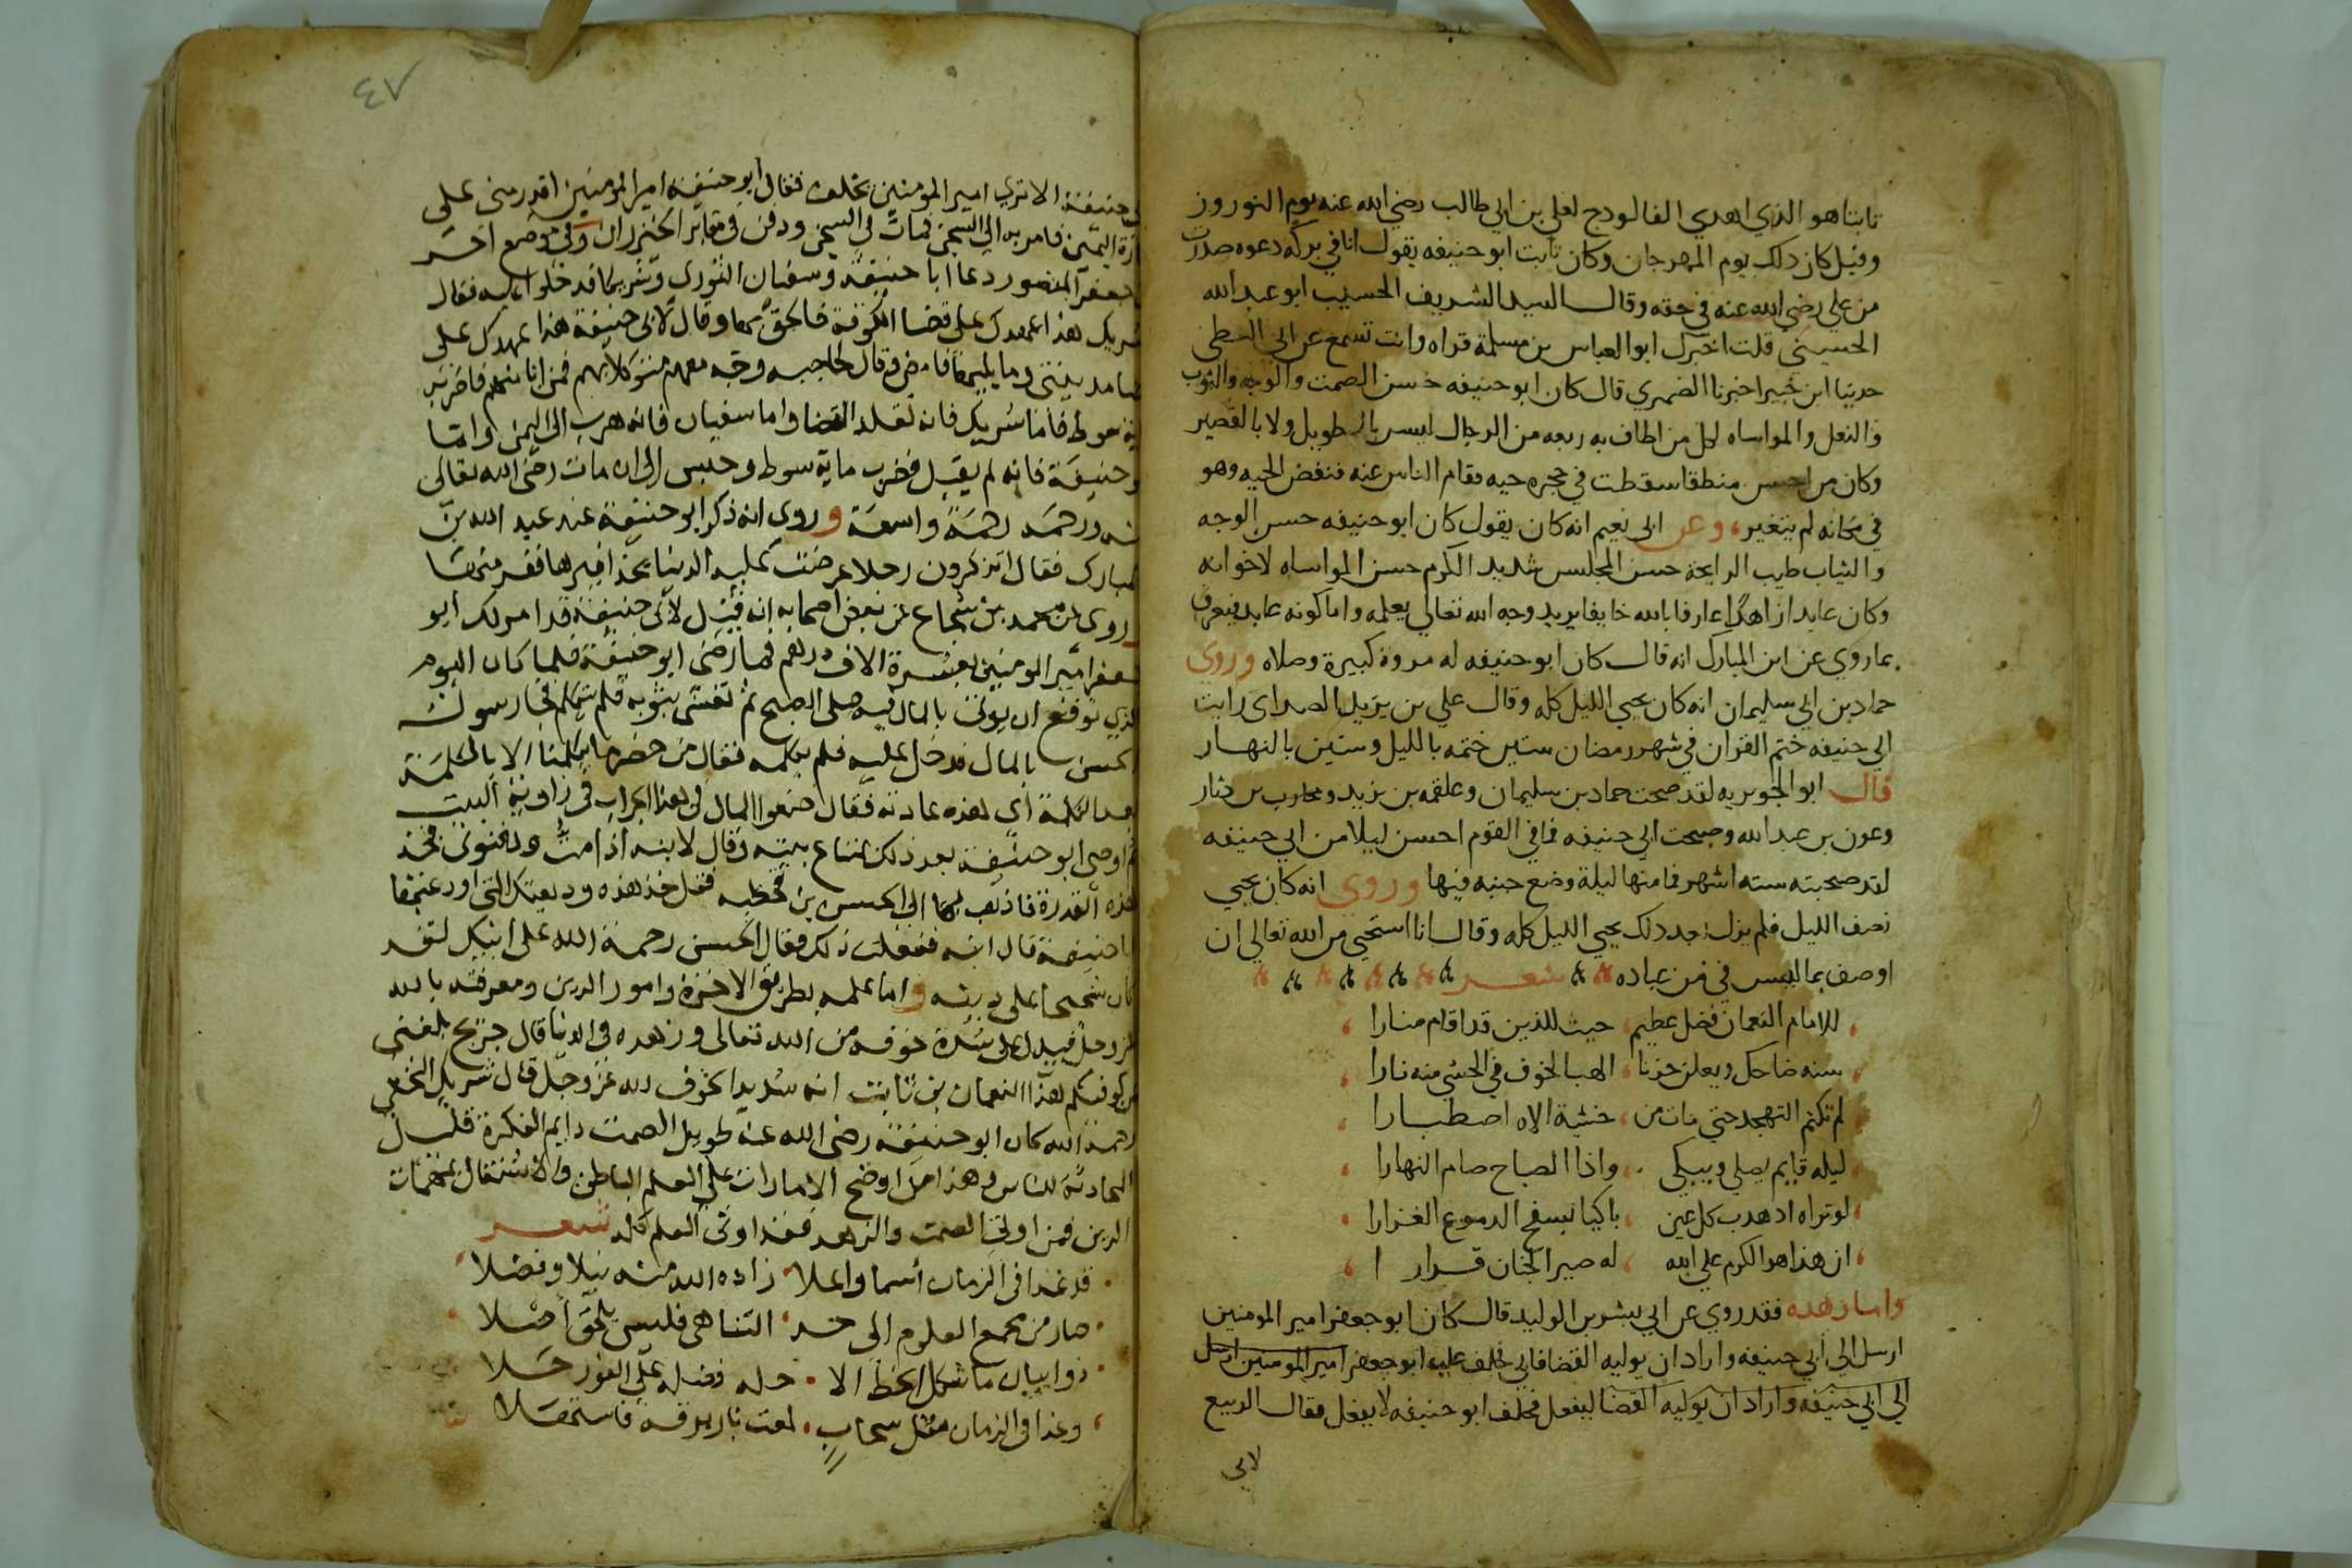 ثابتا هو الذي اهدي الفالودج لعلي بن ابي طالب رضي الله عنه يوم النوروز
وقيل كان ذلك يوم المهرجان وكان ثابت ابو حنيفه يقول انا في بركه دعوه صدرت
من علي رضي الله عنه في حقه وقال السيد الشريف الحسيب ابو عبد الله
الحسيني قلت اخبرك ابو العباس بن مسلمة قراه وانت تسمع عن ابي
حدثنا ابن اخبرنا الضمري قال كان ابو حنيفه حسن الصمت والوجه والثوب
والنعل والمواساه لكل من اطاف به ربعه من الرجال ليس بالطويل ولا بالقصير
وكان من احسن منطقا سقطت في حجره حيه فقام الناس عنه فنفض الحيه وهو
في مكانه لم يتغير، وعن ابي نعيم انه كان يقول كان ابو حنيفه حسن الوجه
والثياب طيب الرايحة حسن المجلس شديد الكرم حسن المواساه لاخوانه
وكان عابدا زاهدا عارفا بالله خايفا يريد وجه الله تعالي بعلمه واما كونه عابد فيعرف
بما روي عن ابن المبارك انه قال كان ابو حنيفه له مروة كبيرة وصلاه وروي
حماد بن ابي سليمان انه كان يحيي الليل كله وقال علي بن يزيد الصداي رايت
ابي حنيفه ختم القران في شهر رمضان ستين ختمه بالليل وستين بالنهار
قال ابو الجويريه لقد صحبت حماد بن سليمان وعلقمه بن يزيد ومحارب بن دثار
وعون بن عبد الله وصحبت ابي حنيفه فما في القوم احسن ليلا من ابي حنيفه
لقد صحبته سته اشهر فما منها ليلة وضع جنبه فيها وروي انه كان يحيي
نصف الليل فلم يزل بعد ذلك يحيي الليل كله وقال انا استحيي من الله تعالي ان
اوصف بما ليس في من عباده شعر
للامام النعمان فضل عظيم حيث للذين قد اقام منارا
سنه ضاحك ويعلن حزنا الهب الخوف في الحشي منه نارا
لم تكتم التهجد حتي مات من خشية الاه اصطبارا
ليله قايم يصلي ويبكي واذا الصباح صام النهارا
لو تراه اذ هدب كل عين باكيا نسفح الدموع الغزارا
ان هذا هو الكرم علي الله له صير الجنان قرارا
واما زهده فقد روي عن ابي بشر بن الوليد قال كان ابو جعفر امير المومنين
ارسل الي ابي حنيفه واراد ان يوليه القضا فابي فحلف عليه ابو جعفر امير المومنين ارسل
الي ابي حنيفه واراد ان يوليه القضا ليفعل فحلف ابو حنيفه لا يفعل فقال الربيع
لابي
٤٧
حنيفة الا تري امير المومنين يحلف فقال ابو حنيفة امير المومنين اقدر مني علي
اليمين فامر به الي السجن فمات في السجن ودفن في مقابر الخيزران وفي موضع اخر
جعفر المنصور دعا ابا حنيفة وسفيان الثوري وشريكا فدخلوا عليه فقال
شريك هذا عهدك علي قضا الكوفة فالحق بها وقال لابي حنيفة هذا عهدك علي
مدينتي وما يليها فامض وقال لحاجبه وجه معهم متوكلا بهم فمن ابا منهم فاضربه
سوط فاما شريك فانه تقلد القضا واما سفيان فانه هرب الي اليمن واما
حنيفة فانه لم يقبل فضرب ماية سوط وحبس الي ان مات رضي الله تعالي
ورحمه رحمة واسعة وروي انه ذكر ابو حنيفة عند عبد الله بن
مبارك فقال اتذكرون رجلا عرضت عليه الدنيا بحذافيرها ففر منها
روي عن محمد بن شجاع عن بعض اصحابه انه قيل لابي حنيفة قد امر لك ابو
جعفر امير المومنين بعشرة الاف درهم فما رضي ابو حنيفة فلما كان اليوم
الذي توقع ان يوتي بالمال فيه صلي الصبح ثم تغشي بثوبه فلم يتكلم فجا رسول
الحسن بالمال فدخل عليه فلم يكلمه فقال من حضر ما يكلمنا الا بالكلمة
بعد الكلمة اي هذه عادته فقال ضعوا المال في هذا الجراب في زاوية البيت
ثم اوصي ابو حنيفة بعد ذلك بمتاع بيته وقال لابنه اذا مت ودفنتوني فخذ
هذه القدرة فاذهب بها الي الحسن بن قحطبه فقل خذ هذه وديعتك التي اودعتها
حنيفة قال ابنه ففعلت ذلك فقال الحسن رحمة الله علي ابيك لقد
كان شحيحا علي دينه واما علمه بطريق الاخرة وامور الدين ومعرفته بالله
عز وجل فيدل علي شدة خوفه من الله تعالي وزهده في الدنيا قال جريج بلغني
كوفيكم هذا النعمان بن ثابت انه شديد الخوف لله عز وجل قال شريك النخعي
رحمة الله كان ابو حنيفة رضي الله عنه طويل الصمت دايم الفكرة قليل
المحادثة للناس وهذا من اوضح الامارات علي العلم الباطن والاشتغال بمهمات
الدين فمن اوتي الصمت والزهد فقد اوتي العلم كله شعر
قد غدا في الزمان اسما واعلا زاده الله منه نيلا وفضلا
صار من مجمع العلوم الي حد التناهي فليس يلحق اصلا
ذو ابيان ما شكل الخط الا حله فضله علي الفور حلا
وغدا في الزمان مثل سحاب لمعت نار برقه فاستهلا